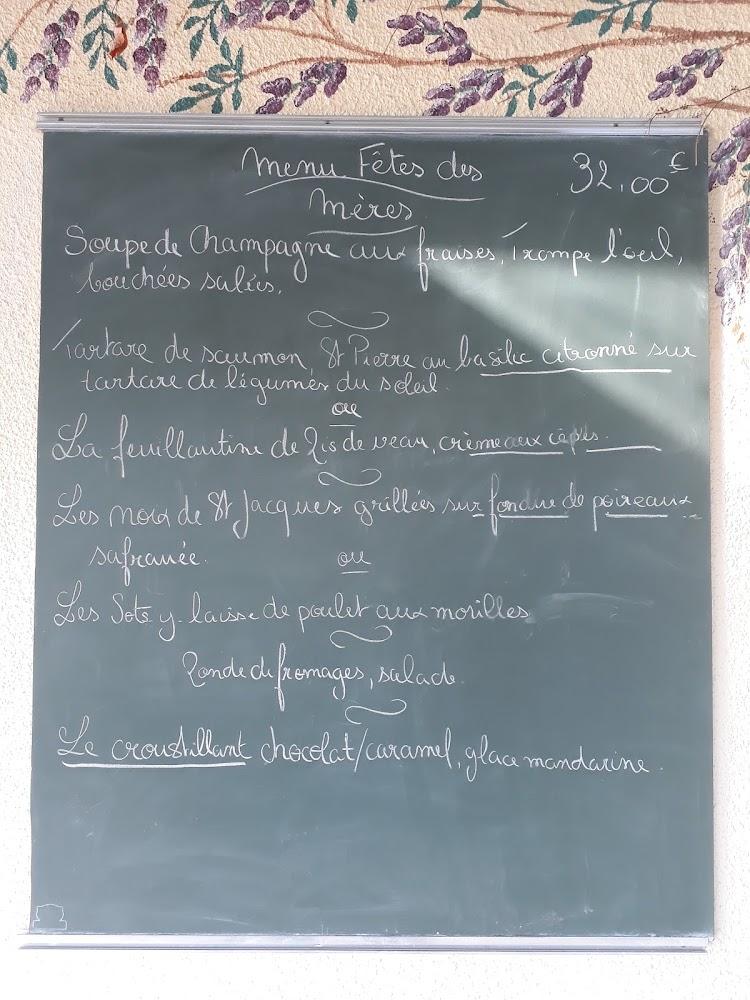 Menu Fêtes des 32.00€
Mères
Soupe de Champagne aux fraises, Trompe l'oeil,
bouchées salées.
Tartare de saumon, St Pierre au basilic citronné sur
tartare de légumes du soleil.
ou
La feuillantine de Ris de veau, crème aux cèpes.
Les noix de St Jacques grillées sur fondue de poireaux
safranée.
ou
Les Sots y laisse de poulet aux morilles
Ronde de fromages, salade.
Le croustillant chocolat/caramel, glace mandarine.